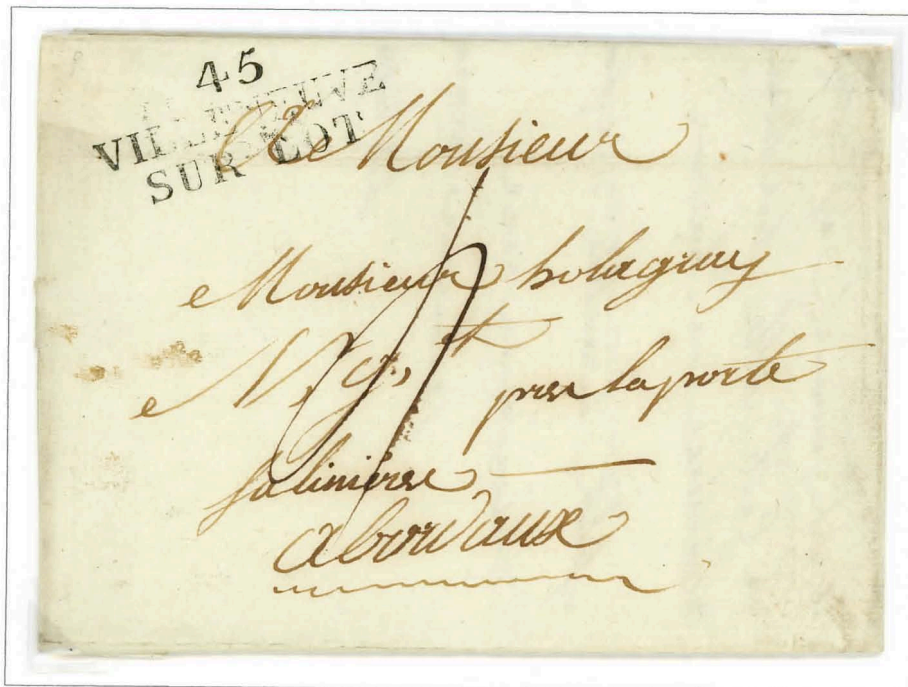 45
VILLENEUVE
SUR LOT
A Monsieur
Monsieur
Ng.t pres la porte
Saliniere
a bordeaux